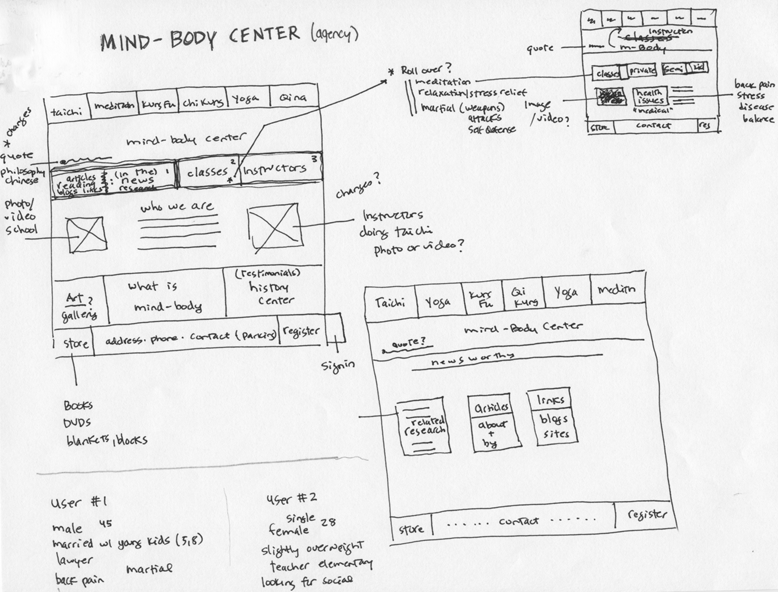 MIND-BODY CENTER (agency)
taichi
meditatn
kungFu
chi kung
Yoga
Qina
* changes
mind-body center
quote
philosophy
chinese
articles
reading
blogs links
(in the) 1
news
research
classes 2
*
Instructors 3
photo/
video
school
who we are
changes?
Instructors
doing taichi
photo or video?
Art ?
gallery
what is
mind-body
(testimonials)
history
center
store
address · phone · contact (parking)
register
signin
Books
DVDS
blankets, blocks
* Roll over?
meditation
relaxation/stress relief
martial (weapons)
attacks
self defense
quote
instructor
classes
m-Body
classes
private
semi
kid
Image
/video?
health
issues
"medical"
back pain
stress
disease
balance
store
contact
res
Taichi
Yoga
Kung
Fu
Qi
Kung
Yoga
medith
mind-Body Center
quote?
newsworthy
related
research
articles
about
+
by
links
blogs
sites
store
...... contact ......
register
user #1
male 45
married w/ young kids (5,8)
lawyer
back pain martial
user #2
single
female 28
slightly overweight
teacher elementary
looking for social